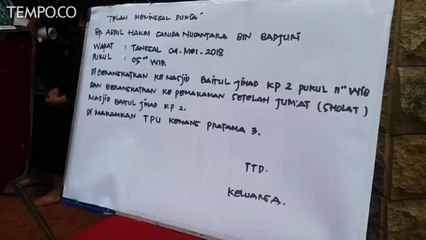 TEMPO.CO
"TELAH MENINGGAL DUNIA"
BP ABDUL HAKIM GARUDA NUSANTARA BIN BADJURI
WAFAT : TANGGAL 04-MEI-2018
PUKUL : 05°° WIB
DI BERANGKATKAN KE MASJID BAITUL JIHAD KP 2 PUKUL 11°° WIB
DAN BERANGKATKAN KE PEMAKAMAN SETELAH JUM'AT (SHOLAT)
MASJID BAITUL JIHAD KP 2.
DI MAKAMKAN TPU KEMANG PRATAMA 3.
TTD.
KELUARGA.